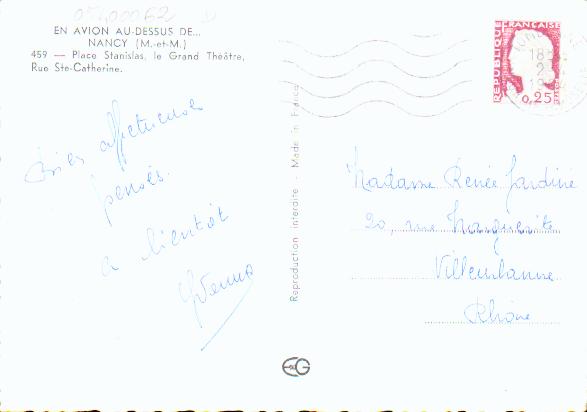 05400062
EN AVION AU-DESSUS DE...
NANCY (M.-et-M.)
459 — Place Stanislas, le Grand Théâtre,
Rue Ste-Catherine.
RÉPUBLIQUE FRANÇAISE
0,25
18
2
Bien affectueuses
pensées.
a bientôt
Yvonne
Reproduction interdite - Made in France
Madame Renée Jardiné
20, rue Marguerite
Villeurbanne
Rhône